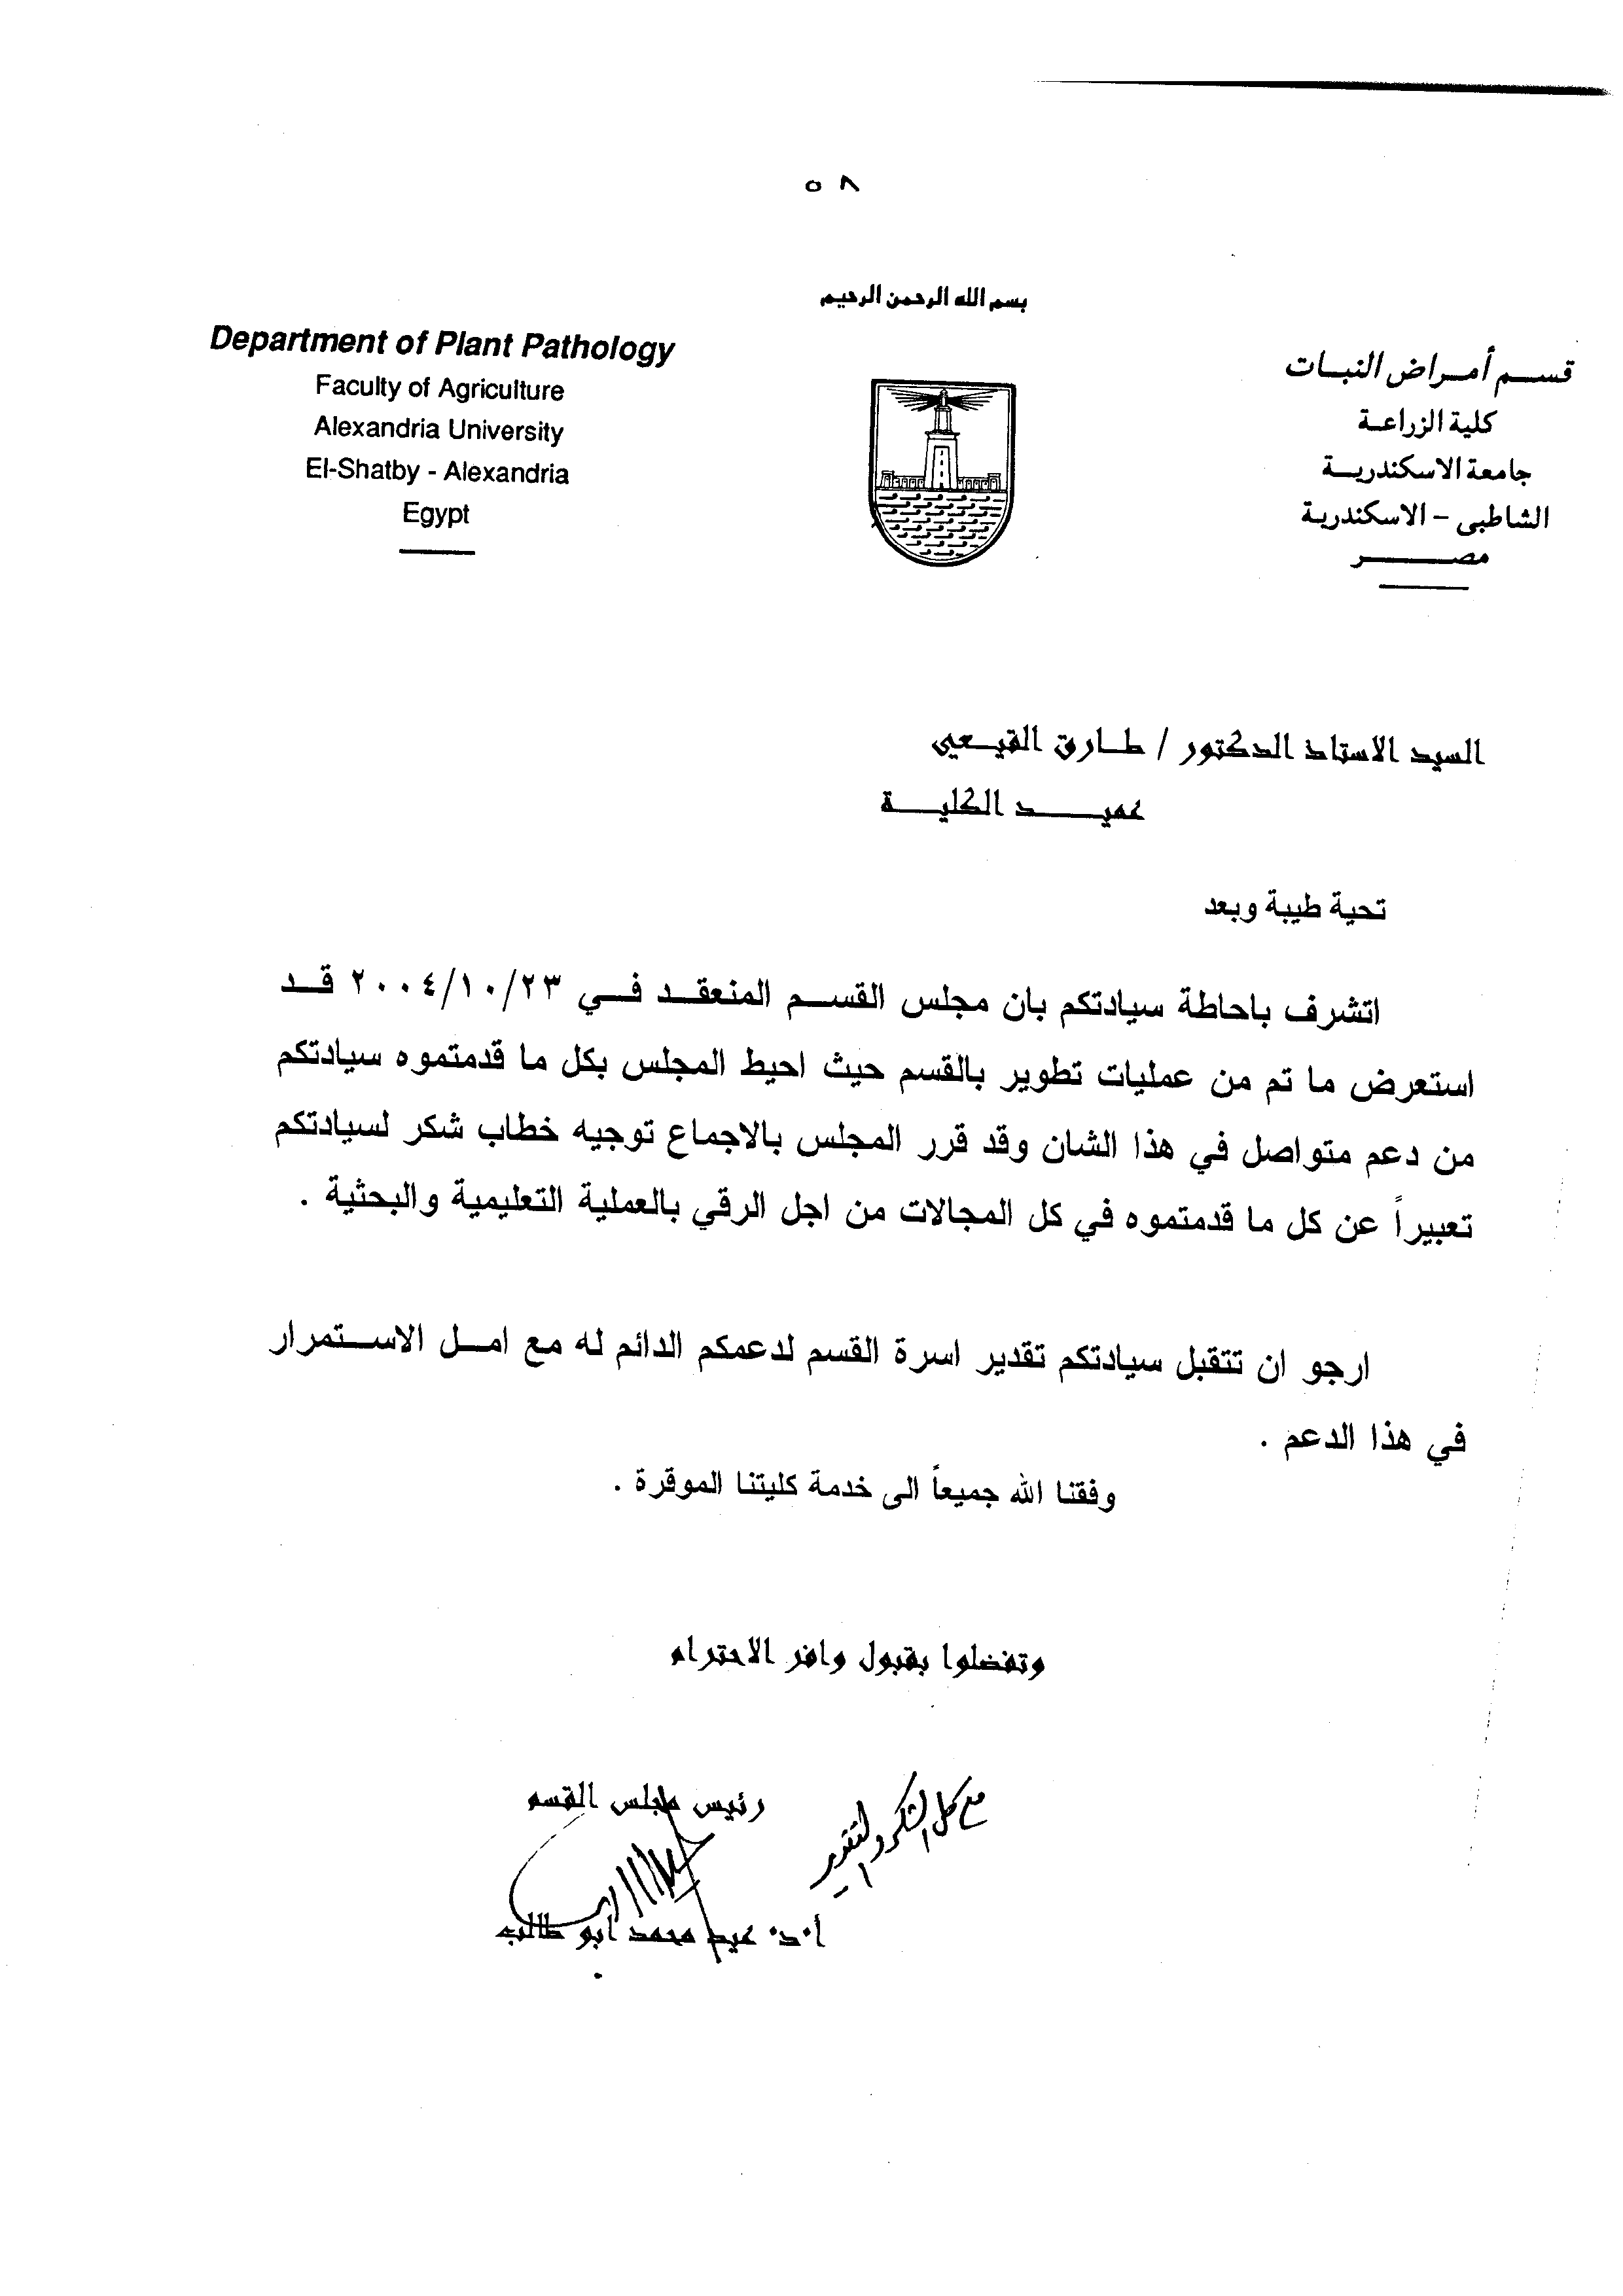 ٥٨
بسم الله الرحمن الرحيم
Department of Plant Pathology
Faculty of Agriculture
Alexandria University
El-Shatby - Alexandria
Egypt
قسم أمراض النبات
كلية الزراعة
جامعة الاسكندرية
الشاطبى - الاسكندرية
مصر
السيد الاستاذ الدكتور / طارق القيعي
عميد الكلية
تحية طيبة وبعد
اتشرف باحاطة سيادتكم بان مجلس القسم المنعقد في ٢٠٠٤/١٠/٢٣ قد
استعرض ما تم من عمليات تطوير بالقسم حيث احيط المجلس بكل ما قدمتموه سيادتكم
من دعم متواصل في هذا الشان وقد قرر المجلس بالاجماع توجيه خطاب شكر لسيادتكم
تعبيراً عن كل ما قدمتموه في كل المجالات من اجل الرقي بالعملية التعليمية والبحثية .
ارجو ان تتقبل سيادتكم تقدير اسرة القسم لدعمكم الدائم له مع امل الاستمرار
في هذا الدعم .
وفقنا الله جميعاً الى خدمة كليتنا الموقرة .
وتفضلوا بقبول وافر الاحترام
رئيس مجلس القسم
مع كل الشكر والتقدير
أ.د. عيد محمد ابو طالب